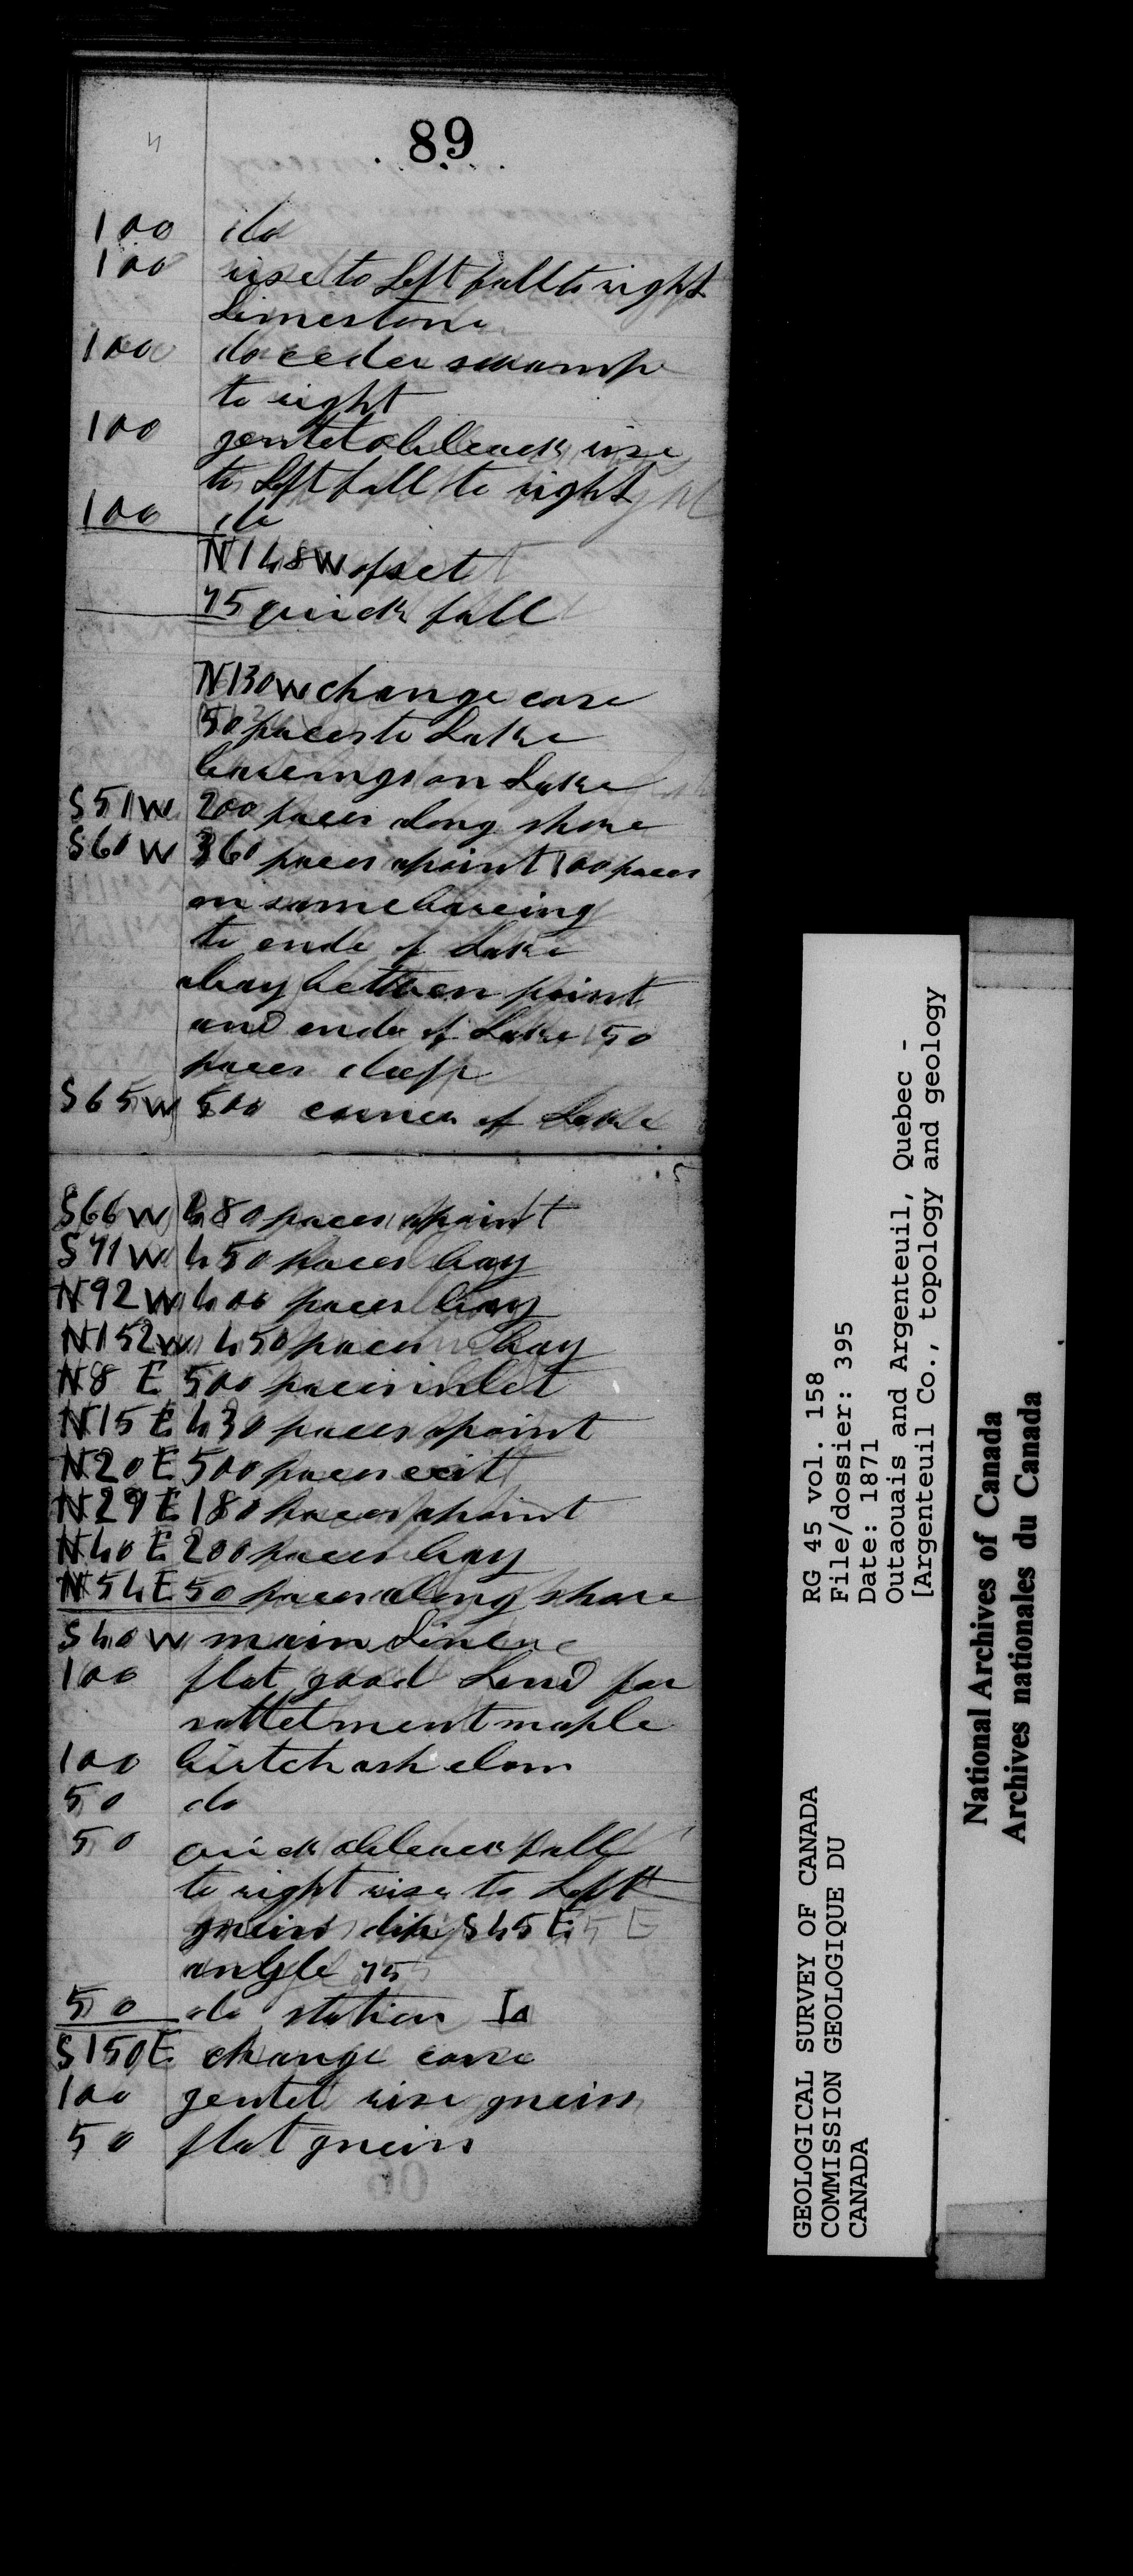 89
100 do
100 rise to Left fall to right
Limestone
100 do ceder swamp
to right
100 gentel obleack rise
to Left fall to right
100 do
N148W ofset
75 quick fall
N130W change corse
50 paces to Lake
bareings on Lake
S51W 200 paces along shore
S60W 360 paces apoint 100 paces
on same bareing
to ende of Lake
abay between point
and ende of Lake 50
paces deep
S65W 500 corner of Lake
S66W 480 paces apoint
S71W 450 paces bay
N92W 400 paces bay
N152W 450 paces bay
N8 E 500 paces inlet
N15E 430 paces apoint
N20E 500 paces exit
N29E 180 paces apoint
N40E 200 paces bay
N54E 50 paces along shore
S40W main Line
100 flat good Land for
settelment maple
100 birtch ash elom
50 do
50 quick obleack fall
to right rise to Left
gneiss dip S45E
angle 75
50 do station
S150E change corse
100 gentel rise gneiss
50 flat gneiss
GEOLOGICAL SURVEY OF CANADA
COMMISSION GEOLOGIQUE DU
CANADA
RG 45 vol. 158
File/dossier: 395
Date: 1871
Outaouais and Argenteuil, Quebec -
[Argenteuil Co., topology and geology
National Archives of Canada
Archives nationales du Canada